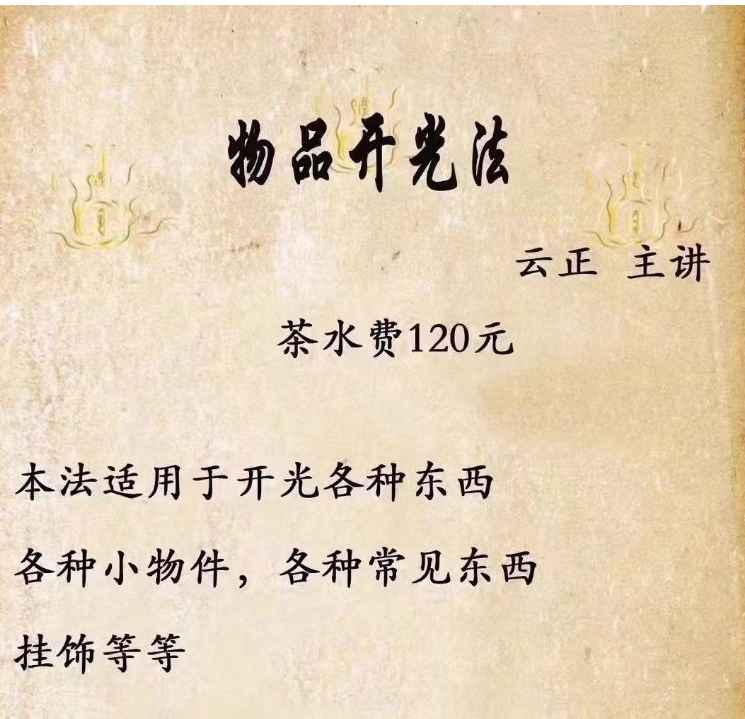 物品开光法
云正 主讲
茶水费120元
本法适用于开光各种东西
各种小物件，各种常见东西
挂饰等等